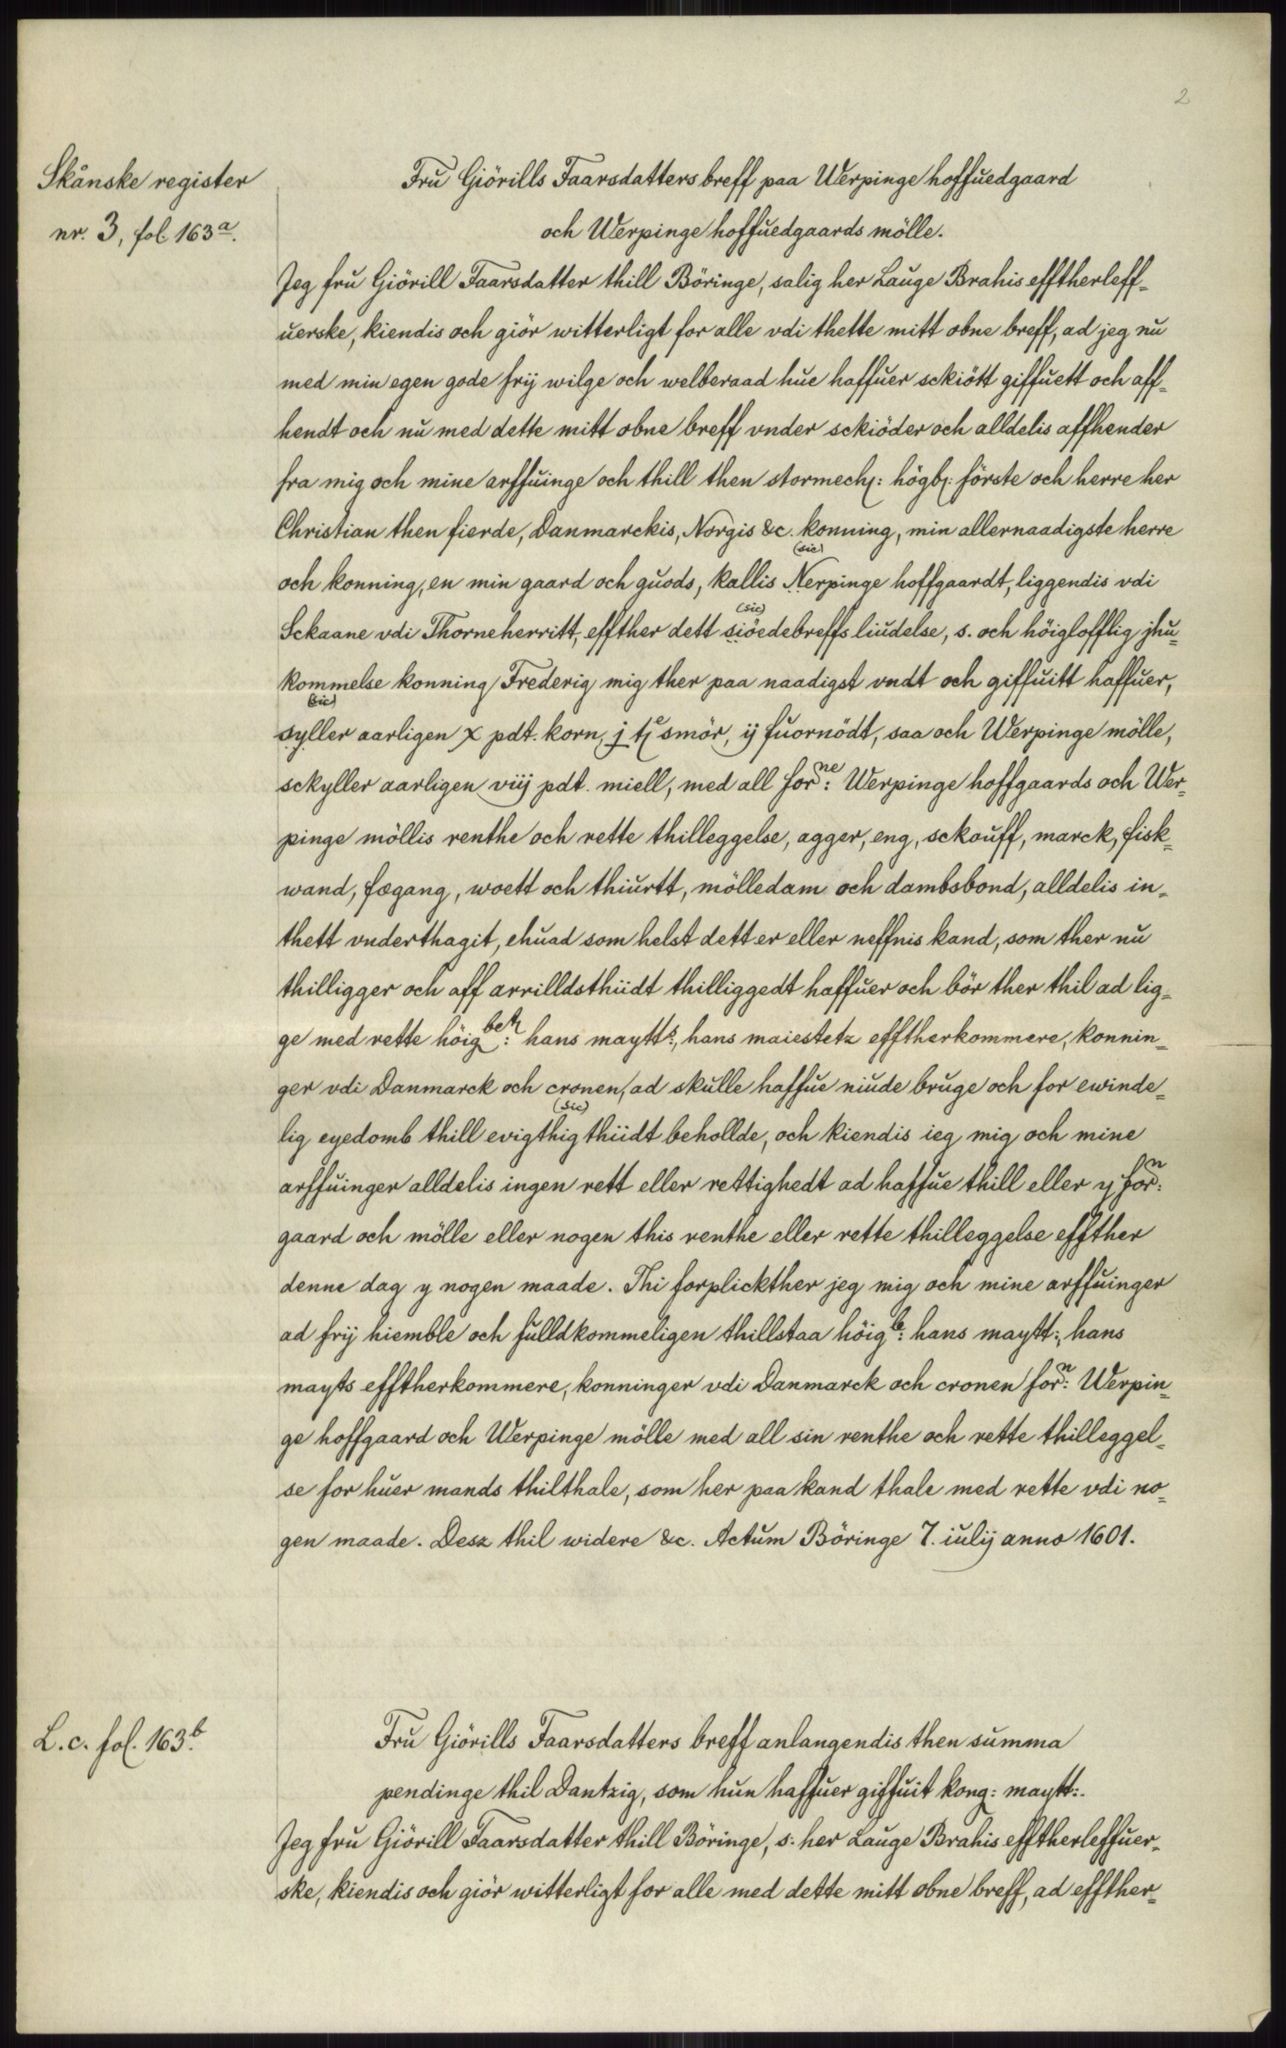 2
Skånske register
nr. 3, fol. 163a.
Fru Giörills Faarsdatters breff paa Werpinge hoffuedgaard
och Werpinge hoffuedgaards mölle.
Jeg fru Giörill Faarsdatter thill Böringe, salig her Lauge Brahis efftherleff-
uerske, kiendis och giör witterligt for alle vdi thette mitt obne breff, ad jeg nu
med min egen gode frij wilge och welberaad hue haffuer sckiött giffuett och aff-
hendt och nu med dette mitt obne breff vnder sckiöder och alldelis affhender
fra mig och mine arffuinge och thill then stormech: högb: förste och herre her
Christian then fierde, Danmarckis, Norgis &c. konning, min allernaadigste herre
och konning, en min gaard och guods, kallis Nerpinge (sic) hoffgaardt, liggendis vdi
Sckaane vdi Thorneherritt, effther dett siöedebreffs (sic) liudelse, s. och höiglofflig jhu-
kommelse konning Frederig mig ther paa naadigst vndt och giffuitt haffuer,
syller (sic) aarligen x pdt. korn, j t smör, ij fuornödt, saa och Werpinge mölle,
sckyller aarligen viij pdt. miell, med all forne: Werpinge hoffgaards och Wer-
pinge möllis renthe och rette thilleggelse, agger, eng, sckouff, marck, fisk-
wand, fægang, woett och thiurtt, mölledam och dambsbond, alldelis in-
thett vnderthagit, ehuad som helst dett er eller neffnis kand, som ther nu
thilligger och aff arrilldsthiidt thilliggedt haffuer och bör ther thil ad lig-
ge med rette höigbet: hans maytts, hans maiestetz efftherkommere, konnin-
ger vdi Danmarck och cronen, ad skulle haffue niude bruge och for ewinde-
lig eyedomb thill evigthig (sic) thiidt behollde, och kiendis ieg mig och mine
arffuinger alldelis ingen rett eller rettighedt ad haffue thill eller y forn:
gaard och mölle eller nogen this renthe eller rette thilleggelse effther
denne dag y nogen maade. Thi forplickther jeg mig och mine arffuinger
ad frij hiemble och fulldkommeligen thillstaa höigb: hans maytt:, hans
mayts efftherkommere, konninger vdi Danmarck och cronen forn: Werpin-
ge hoffgaard och Werpinge mölle med all sin renthe och rette thilleggel-
se for huer mands thilthale, som her paa kand thale med rette vdi no-
gen maade. Desz thil widere &c. Actum Böringe 7. iulij anno 1601.
L. c. fol. 163b.
Fru Giörills Faarsdatters breff anlangendis then summa
pendinge thil Dantzig, som hun haffuer giffuit kong: maytt:.
Jeg fru Giörill Faarsdatter thill Böringe, s: her Lauge Brahis efftherleffuer-
ske, kiendis och giör witterligt for alle med dette mitt obne breff, ad effther-